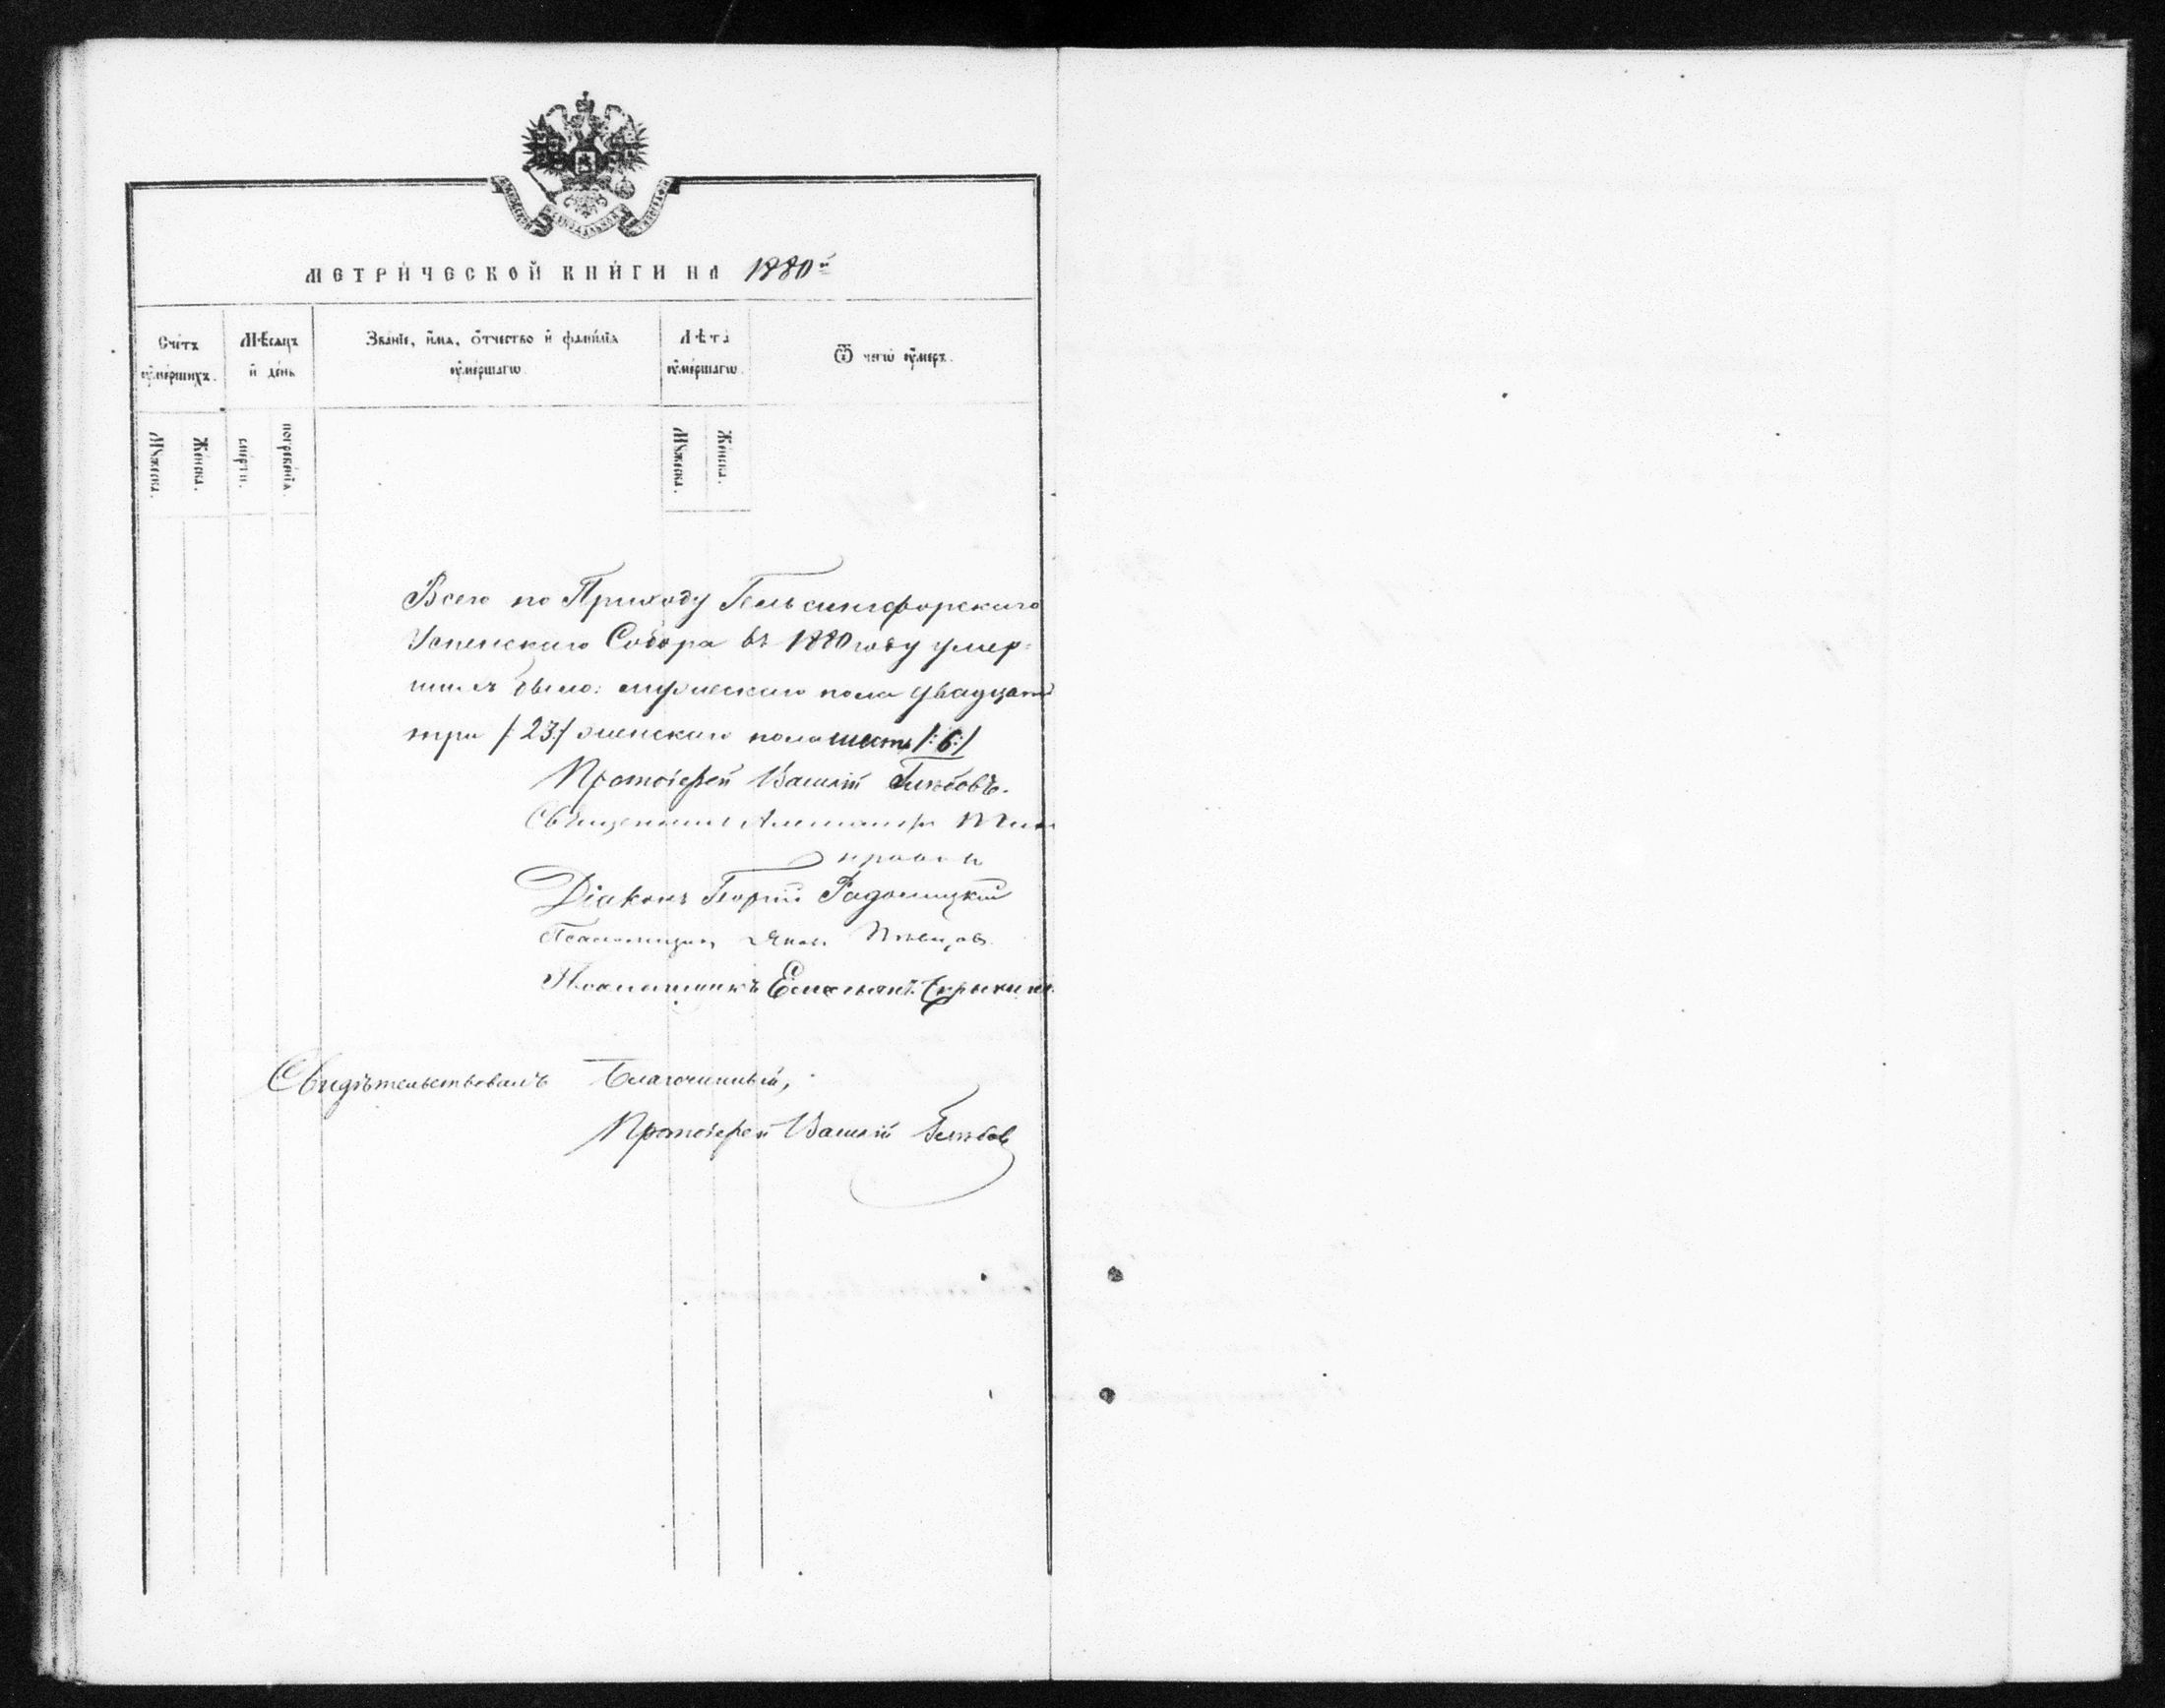 МЕТРИ́ЧЕСКОЙ КНИ́ГИ НА 1880й
Сче́тъ ᲂу҆ме́ршихъ.
Мѣ́сѧцъ и҆ де́нь
Зва́нїе, и҆́мѧ, ѻ҆́тчество и҆ фами́лїѧ ᲂу҆ме́ршагѡ.
Лѣ́та ᲂу҆ме́ршагѡ.
Ѿ чегѡ̀ ᲂу҆́меръ.
Мꙋ́жеска.
Же́нска.
сме́рти.
погребе́нїѧ.
Мꙋ́жеска.
Же́нска.
Всего по Приходу Гельсингфорскаго
Успенскаго Собора въ 1880 году умер-
шихъ было: мужескаго пола двадцать
три /:23:/ женскаго пола шесть /:6:/
Протоіерей Василій Глѣбовъ.
Священникъ Александръ
Діаконъ Георгій Радомицкій
Псаломщикъ Яковъ Пѣвцовъ
Псаломщикъ Емельянъ
Свидѣтельствовалъ Благочинный,
Протоіерей Василій Глѣбовъ